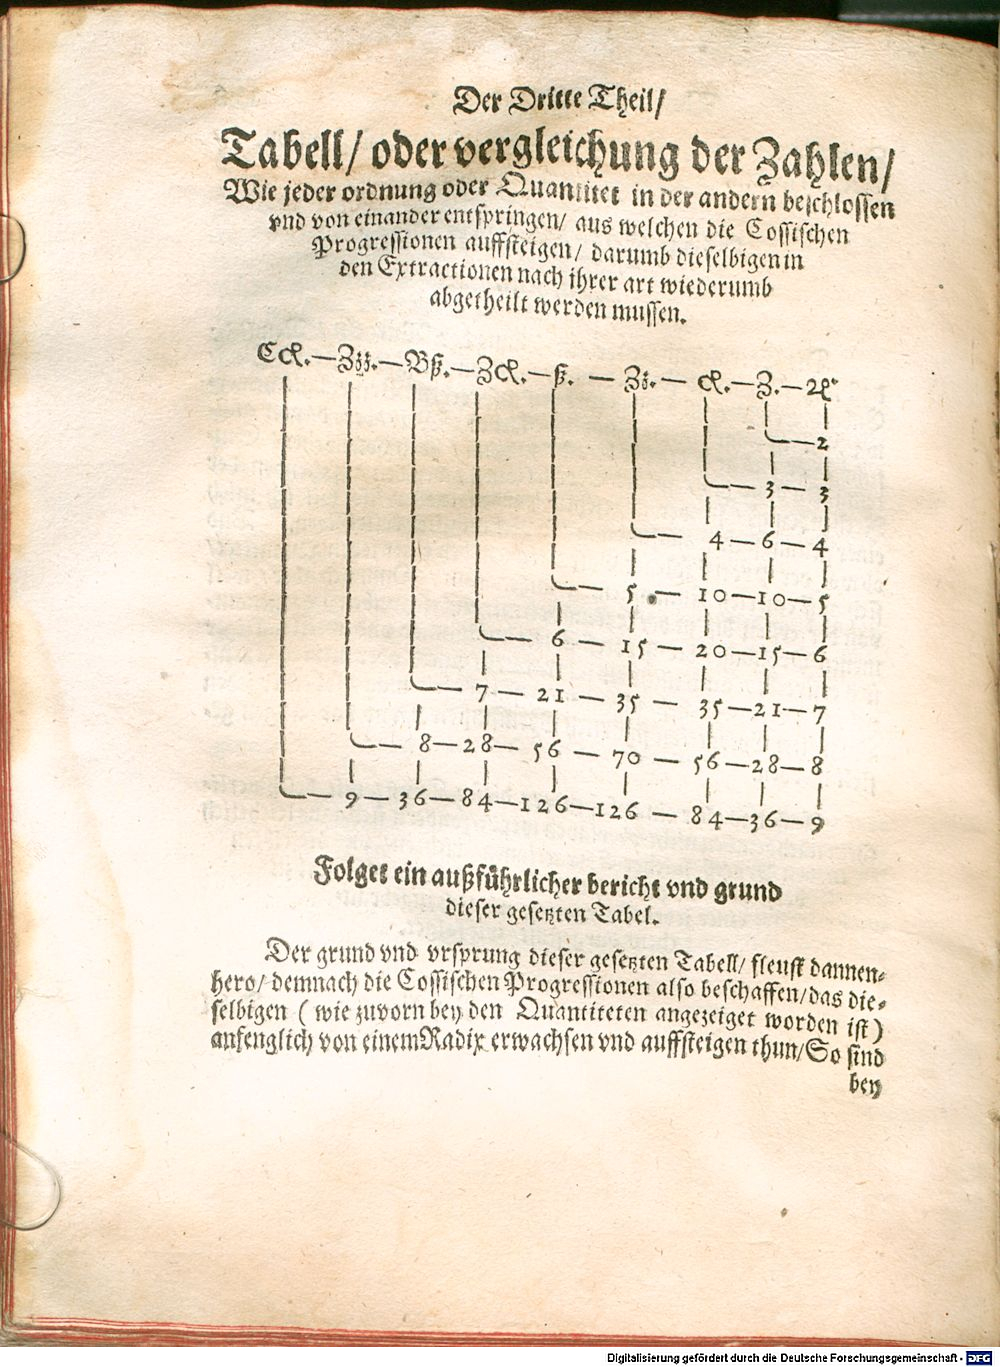 Der Dritte Theil/
Tabell/ oder vergleichung der Zahlen/
Wie jeder ordnung oder Quantitet in der andern beschlossen
vnd von einander entspringen/ aus welchen die Cossischen
Progressionen auffsteigen/ darumb dieselbigen in
den Extractionen nach ihrer art wiederumb
abgetheilt werden mussen.
Ccl.—Zzz.—Bß.—Zcl.—ß.—Zz.—cl.—Z.—
2
3—3
4—6—4
5—10—10—5
6—15—20—15—6
7—21—35—35—21—7
8—28—56—70—56—28—8
9—36—84—126—126—84—36—9
Folget ein außführlicher bericht vnd grund
dieser gesetzten Tabel.
Der grund vnd vrsprung dieser gesetzten Tabell/ fleust dannen-
hero/ demnach die Cossischen Progressionen also beschaffen/ das die-
selbigen ( wie zuvorn bey den Quantiteten angezeiget worden ist )
anfenglich von einem Radix erwachsen vnd auffsteigen thun/ So sind
bey
Digitalisierung gefördert durch die Deutsche Forschungsgemeinschaft - DFG